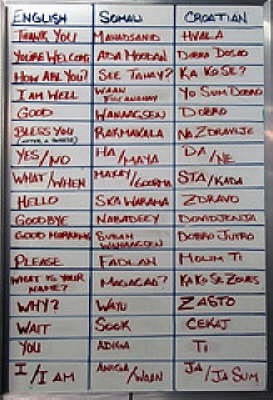 ENGLISH SOMALI CROATIAN
THANK YOU MAHADSANID HVALA
YOU'RE WELCOME ADA MOODAN DOBRO DOSAO
HOW ARE YOU? SEE TAHAY? KAKO SE?
I AM WELL WAAN FIICANAHAY YO SUM DOBRO
GOOD WANAAGSEN DOBRO
BLESS YOU (AFTER A SNEEZE) RAKMAKALA NA ZDRAVLJE
YES/NO HA/MAYA DA/NE
WHAT/WHEN MAXAY/GOORMA STA/KADA
HELLO SKA WARAMA ZDRAVO
GOODBYE NABADEEY DOVIDJENJA
GOOD MORNING SUBAH WANAAGSEN DOBRO JUTRO
PLEASE FADLAN MOLIM TI
WHAT IS YOUR NAME? MAGACAA? KAKO SE ZOVES
WHY? WAYU ZASTO
WAIT SOOK CEKAJ
YOU ADIGA TI
I/I AM ANIGA/WAAN JA/JA SUM